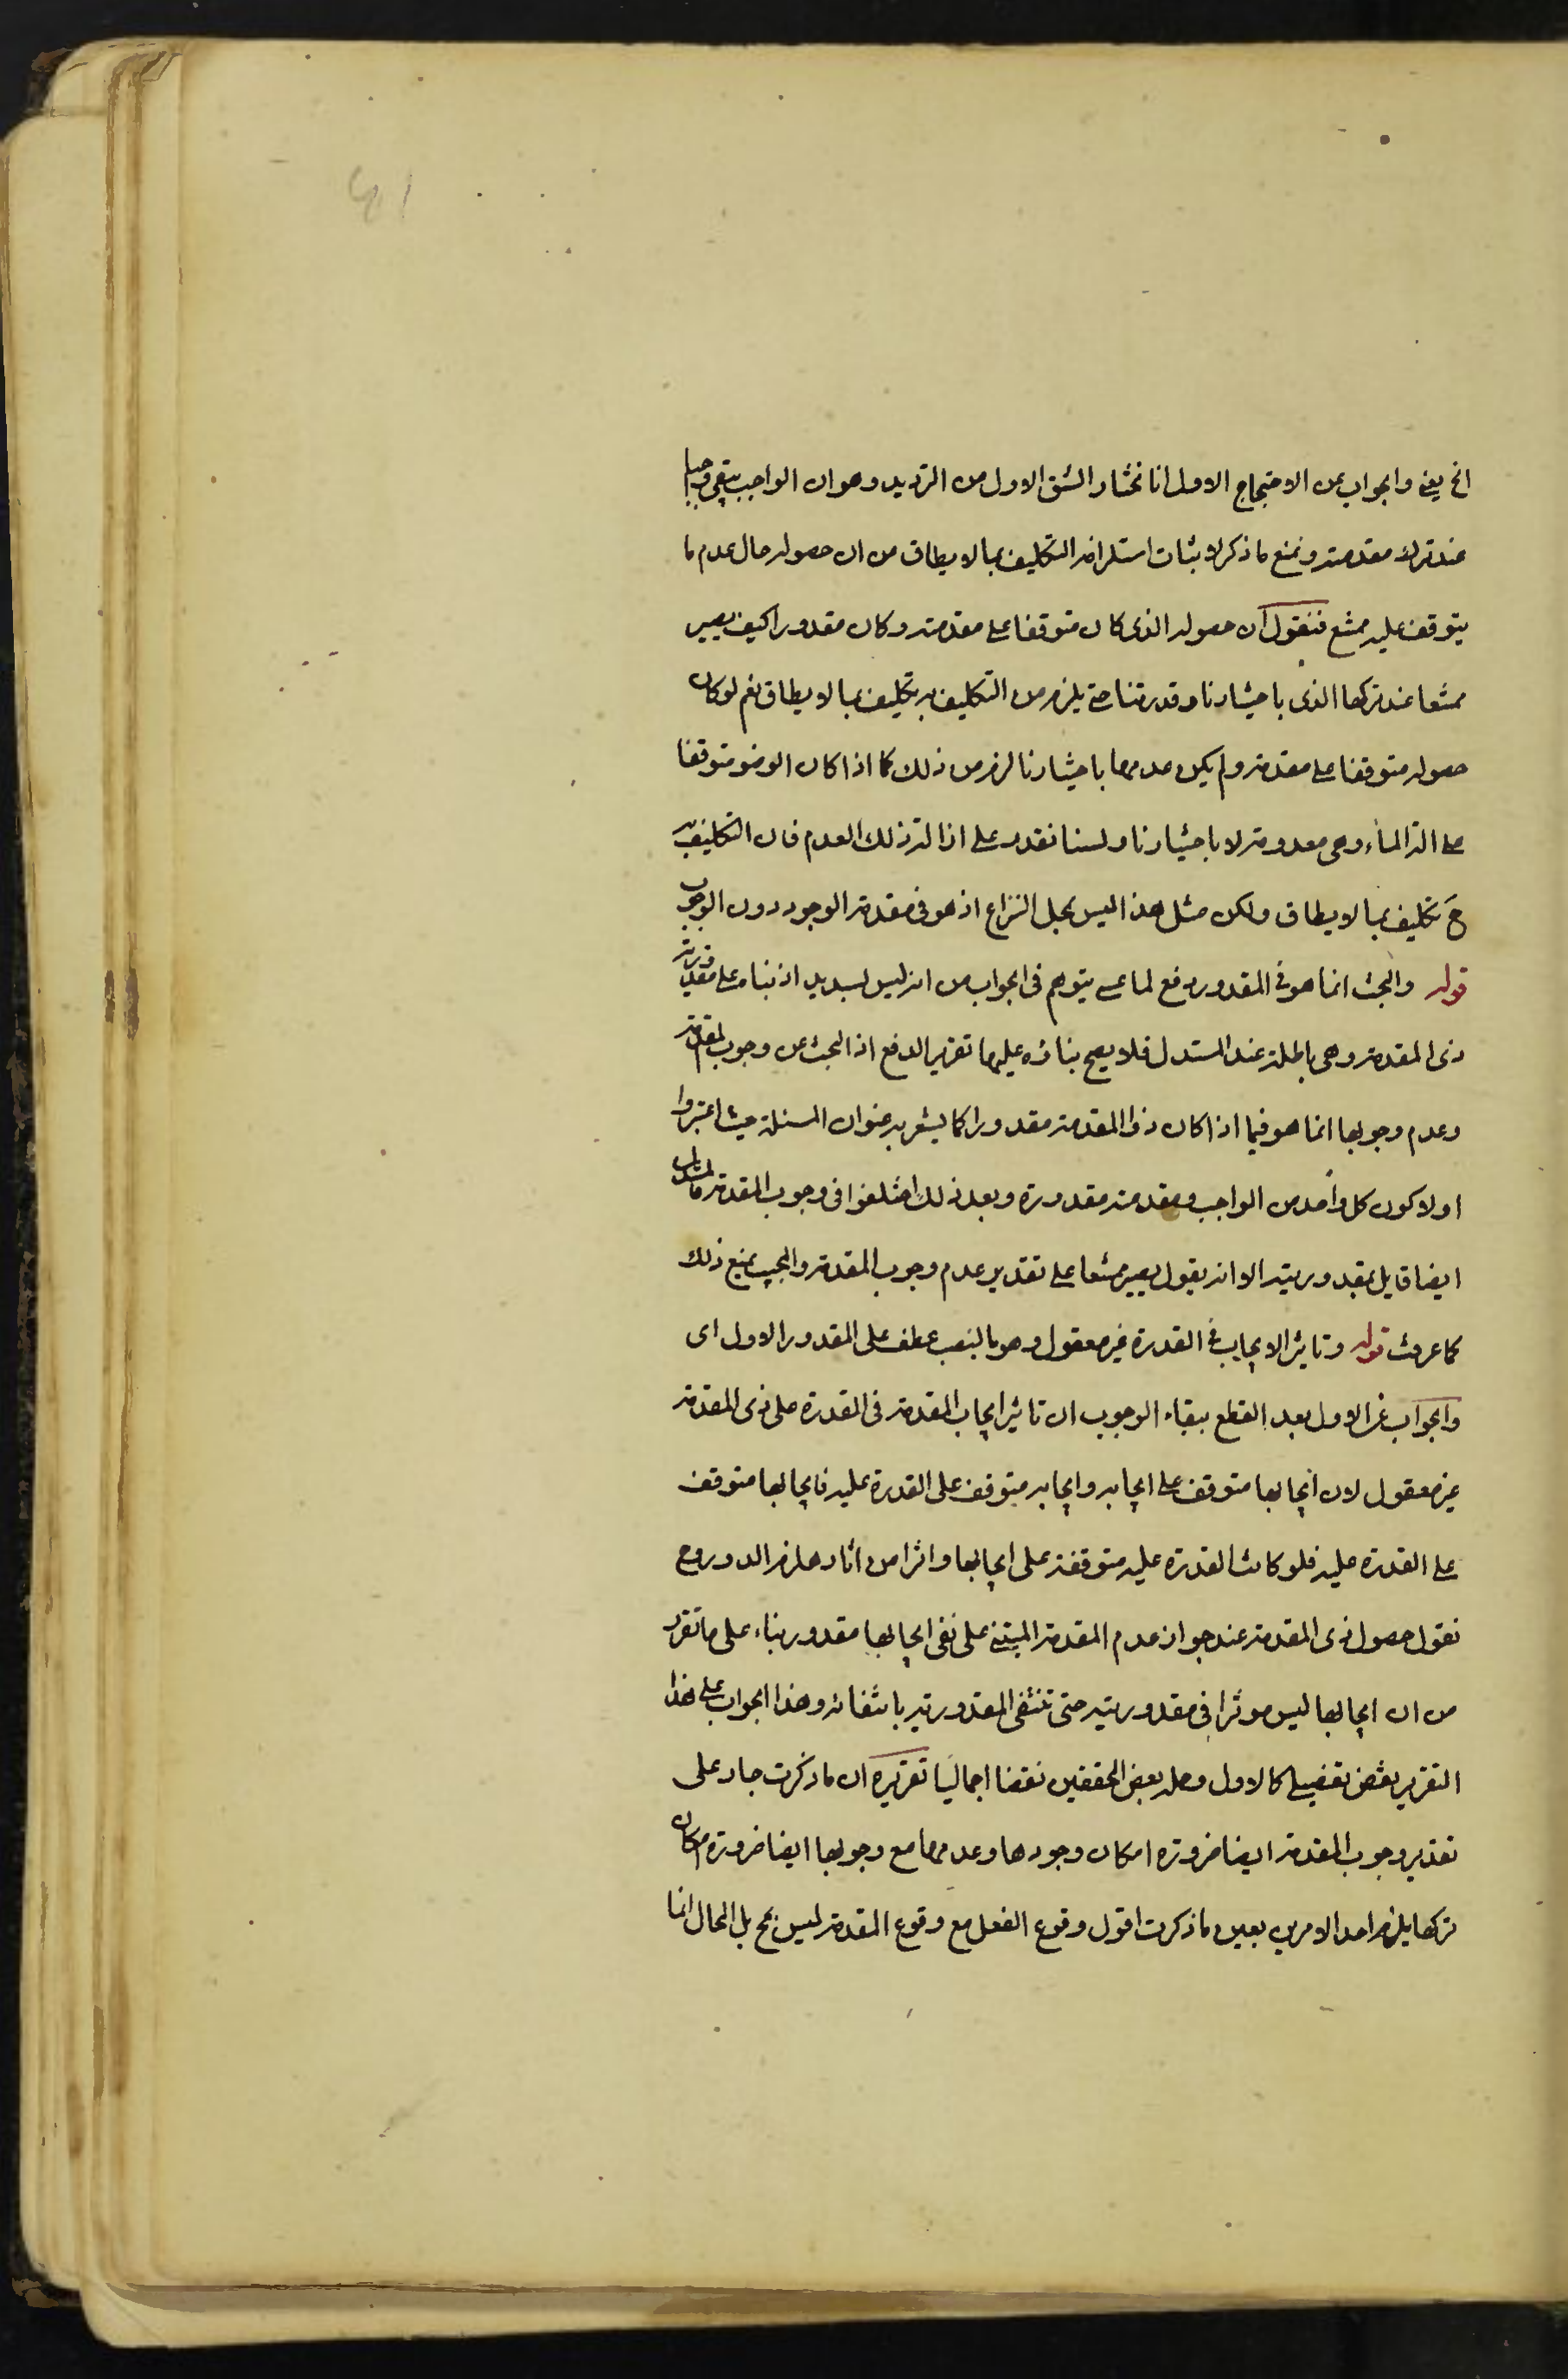 الخ يعنى والجواب عن الاحتجاج الاول انا نختار الشق الاول من الترديد وهو ان الواجب يبقى واجبا
عند ترك مقدمته ونمنع ما ذكر لاثبات استلزامه التكليف بما لا يطاق من ان حصوله حال عدم ما
يتوقف عليه ممتنع فنقول ان حصوله الذى كان متوقفا على مقدمته وكان مقدورا كيف يصير
ممتنعا عند تركها الذى باختيارنا وقدرتنا حتى يلزم من التكليف به تكليف بما لا يطاق نعم لو كان
حصوله متوقفا على مقدمة ولم يكن عدمها باختيارنا لزم من ذلك كما اذا كان الوضو متوقفا
على الة الماء وهى معدومة لا باختيارنا ولسنا نقدر على ازالة ذلك العدم فان التكليف به
ح تكليف بما لا يطاق ولكن مثل هذا ليس محل النزاع اذ هو فى مقدمة الوجود دون الوجوب
قوله والبحث انما هو فى المقدور دفع لما عسى يتوهم فى الجواب من انه ليس بسديد اذ بناه على مقدورية
ذى المقدمة وهى باطلة عند المستدل فلا يصح بناؤه عليها تقرير الدفع اذ البحث عن وجوب المقدمة
وعدم وجوبها انما هو فيما اذا كان ذو المقدمة مقدورا كما يشعر به عنوان المسئلة حيث اعتبروا
اولا كون كل واحد من الواجب ومقدمته مقدورة وبعد ذلك اختلفوا فى وجوب المقدمة فالمستدل
ايضا قايل بمقدوريته الا انه يقول يصير ممتنعا على تقدير عدم وجوب المقدمة والمجيب يمنع ذلك
كما عرفت قوله وتاثير الايجاب فى القدرة غير معقول وهو بالنصب عطف على المقدور الاول اى
والجواب عن الاول بعد القطع ببقاء الوجوب ان تاثير ايجاب المقدمة فى القدرة على ذى المقدمة
غير معقول لان ايجابها متوقف على ايجابه وايجابه متوقف على القدرة عليه فايجابها متوقف
على القدرة عليه فلو كانت القدرة عليه متوقفة على ايجابها واثرا من اثارها لزم الدور وح
نقول حصول ذى المقدمة عند جواز عدم المقدمة المبتنى على نفى ايجابها مقدور بناء على ما تقرر
من ان ايجابها ليس موثرا فى مقدوريته حتى تنتفى المقدورية بانتفائه وهذا الجواب على هذا
التقرير نقض تفصيلى كالاول وجعله بعض المحققين نقضا اجماليا تقريره ان ما ذكرت جار على
تقدير وجوب المقدمة ايضا ضرورة امكان وجودها وعدمها مع وجوبها ايضا ضرورة امكان
تركها يلزم احد الامرين بعين ما ذكرت اقول وقوع الفعل مع وقوع المقدمة ليس بمح بل المحال انما